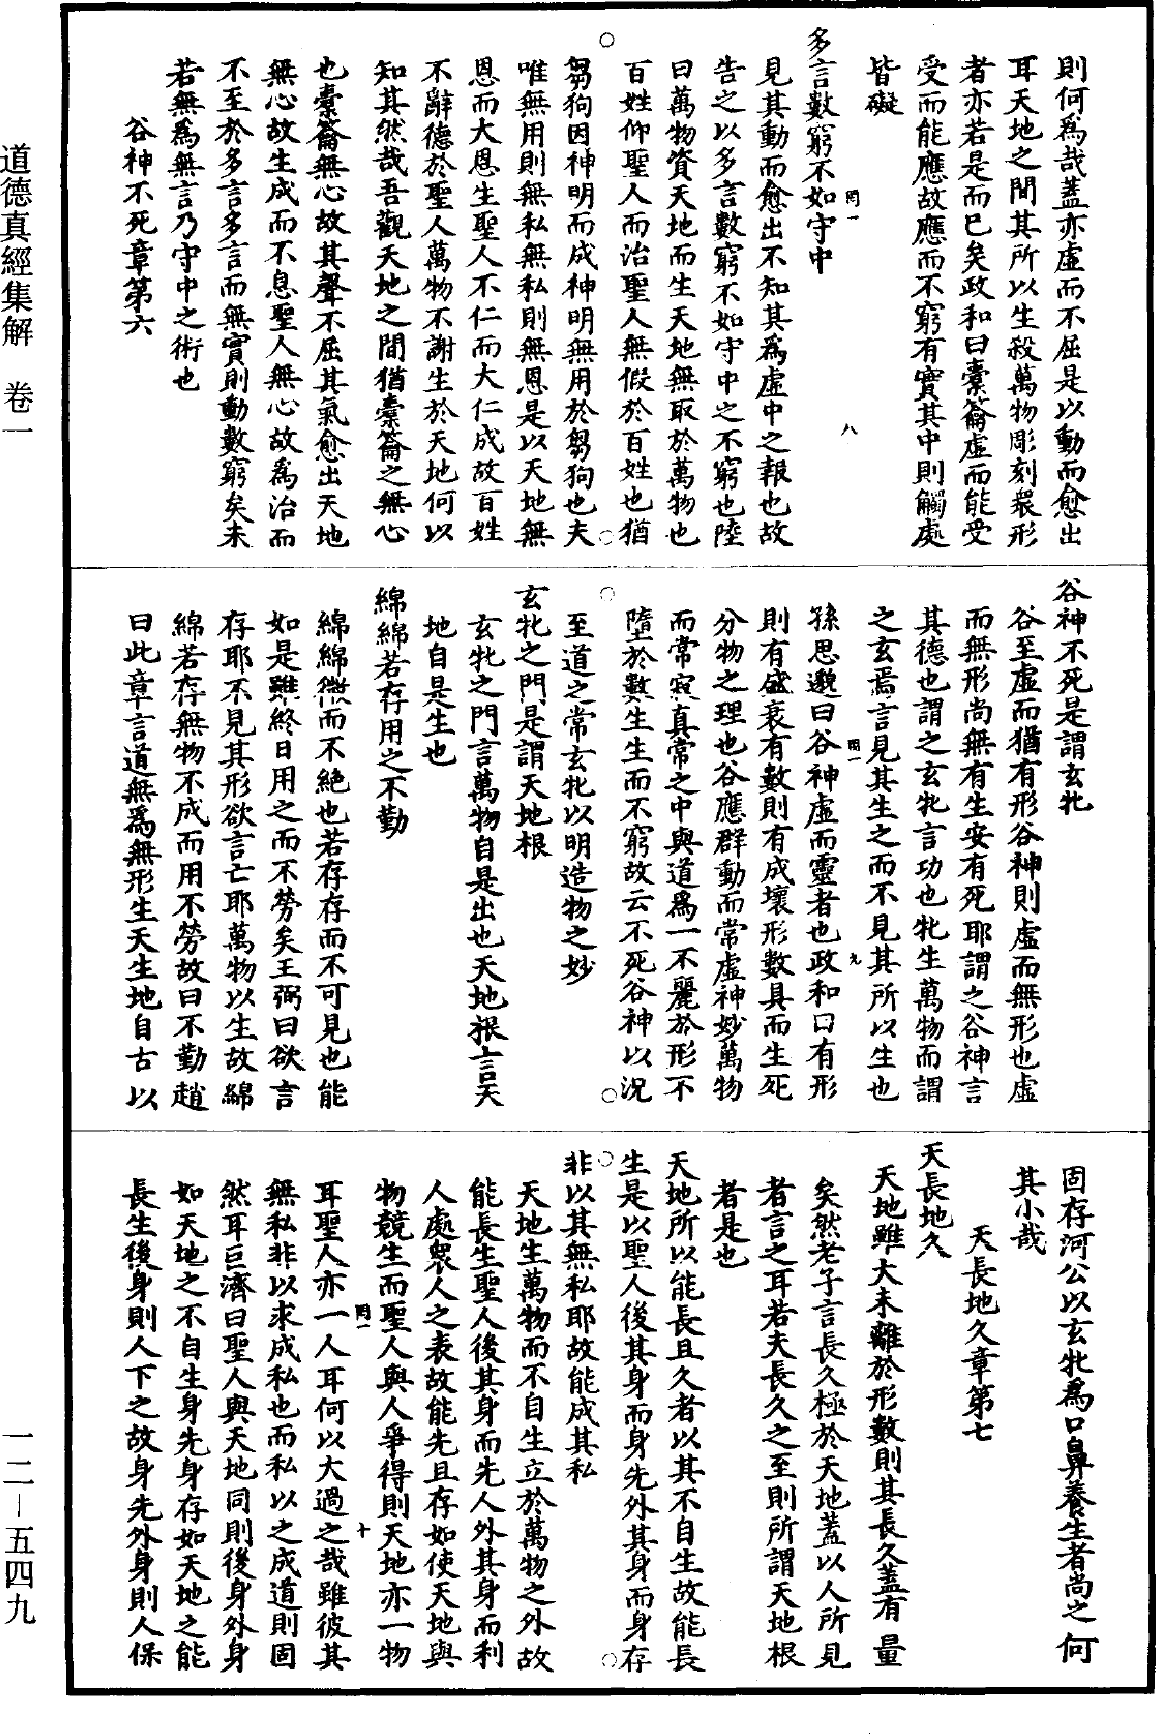 道德真經集解　卷一
一二－五四九
則何為哉蓋亦虛而不屈是以動而愈出
耳天地之間其所以生殺萬物彫刻衆形
者亦若是而已矣政和曰橐籥虛而能受
受而能應故應而不窮有實其中則觸處
皆礙
多言數窮不如守中
見其動而愈出不知其為虛中之報也故
告之以多言數窮不如守中之不窮也陸
曰萬物資天地而生天地無取於萬物也
百姓仰聖人而治聖人無假於百姓也猶
芻狗因神明而成神明無用於芻狗也夫
唯無用則無私無私則無恩是以天地無
恩而大恩生聖人不仁而大仁成故百姓
不辭德於聖人萬物不謝生於天地何以
知其然哉吾觀天地之間猶橐籥之無心
也橐籥無心故其聲不屈其氣愈出天地
無心故生成而不息聖人無心故為治而
不至於多言多言而無實則動數窮矣未
若無為無言乃守中之術也
谷神不死章第六
谷神不死是謂玄牝
谷至虛而猶有形谷神則虛而無形也虛
而無形尚無有生安有死耶謂之谷神言
其德也謂之玄牝言功也牝生萬物而謂
之玄焉言見其生之而不見其所以生也
孫思邈曰谷神虛而靈者也政和曰有形
則有盛衰有數則有成壞形數具而生死
分物之理也谷應群動而常虛神妙萬物
而常寂真常之中與道為一不麗於形不
墮於數生生而不窮故云不死谷神以況
至道之常玄牝以明造物之妙
玄牝之門是謂天地根
玄牝之門言萬物自是出也天地根言天
地自是生也
綿綿若存用之不勤
綿綿微而不絕也若存存而不可見也能
如是雖終日用之而不勞矣王弼曰欲言
存耶不見其形欲言亡耶萬物以生故綿
綿若存無物不成而用不勞故曰不勤趙
曰此章言道無為無形生天生地自古以
固存河公以玄牝為口鼻養生者尚之何
其小哉
天長地久章第七
天長地久
天地雖大未離於形數則其長久蓋有量
矣然老子言長久極於天地蓋以人所見
者言之耳若夫長久之至則所謂天地根
者是也
天地所以能長且久者以其不自生故能長
生是以聖人後其身而身先外其身而身存
非以其無私耶故能成其私
天地生萬物而不自生立於萬物之外故
能長生聖人後其身而先人外其身而利
人處衆人之表故能先且存如使天地與
物競生而聖人與人爭得則天地亦一物
耳聖人亦一人耳何以大過之哉雖彼其
無私非以求成私也而私以之成道則固
然耳巨濟曰聖人與天地同則後身外身
如天地之不自生身先身存如天地之能
長生後身則人下之故身先外身則人保